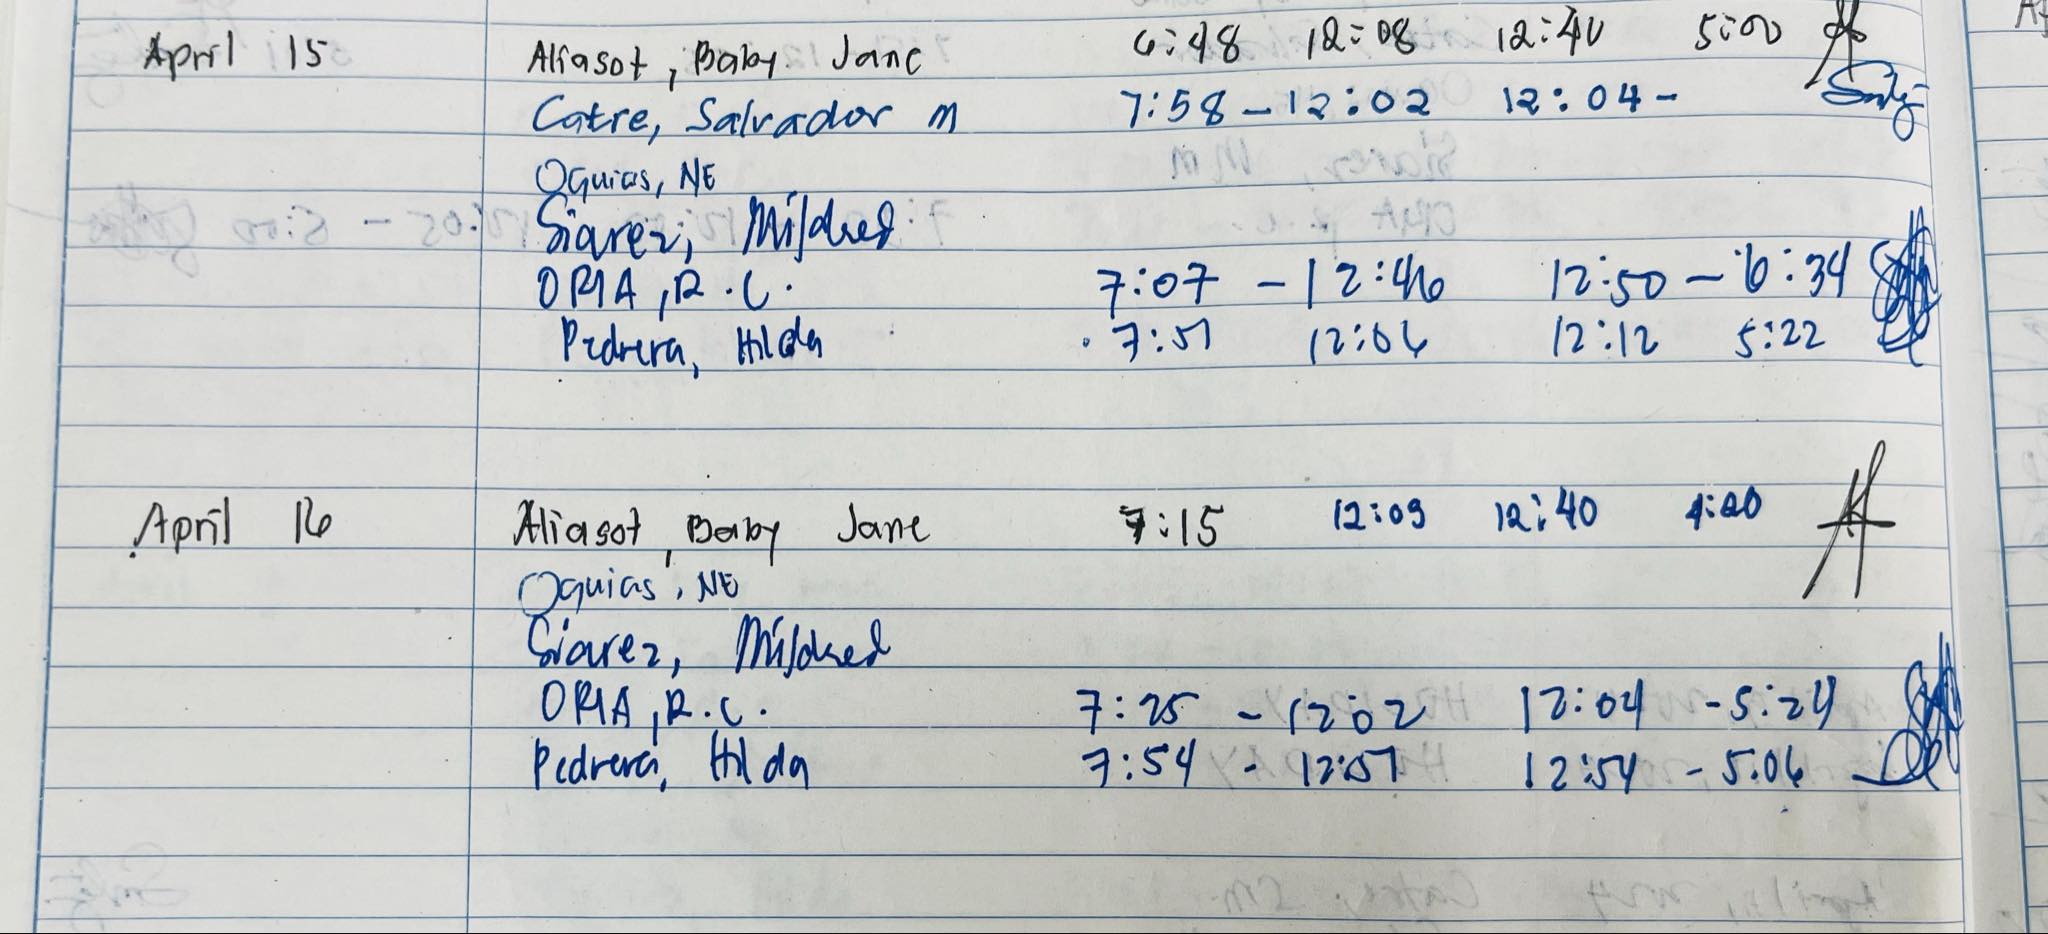 April 15 Aliasot, Baby Jane 6:48 12:08 12:40 5:00
Catre, Salvador M 7:58 - 12:02 12:04 -
Oguias, NE
Siarez, Mildred
ORIA, R.C. 7:07 - 12:46 12:50 - 6:34
Pedrera, Hilda 7:51 12:06 12:12 5:22
April 16 Aliasot, Baby Jane 7:15 12:09 12:40
Oguias, NE
Siarez, Mildred
ORIA, R.C. 7:25 - 12:02 12:04 - 5:24
Pedrera, Hilda 7:54 - 12:51 12:54 - 5:06